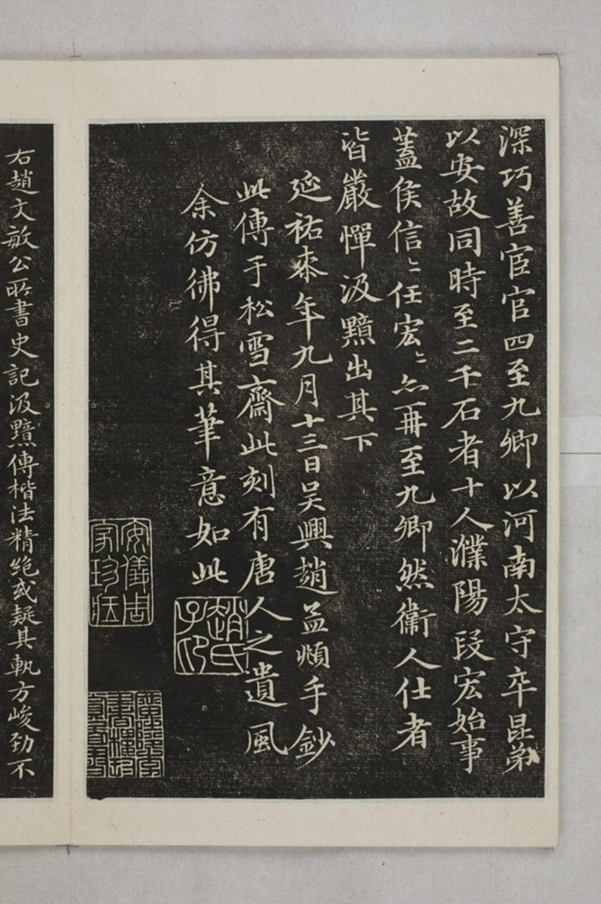 深巧善宦官四至九卿以河南太守卒昆弟
以安故同時至二千石者十人濮陽段宏始事
蓋侯信〻任宏〻亦再至九卿然衛人仕者
皆嚴憚汲黯出其下
延祐柒年九月十三日吳興趙孟頫手鈔
此傳于松雪齋此刻有唐人之遺風
余仿彿得其筆意如此
趙氏子印
安儀周家珍藏
右趙文敏公所書史記汲黯傳楷法精絕或疑其軌方峻勁不